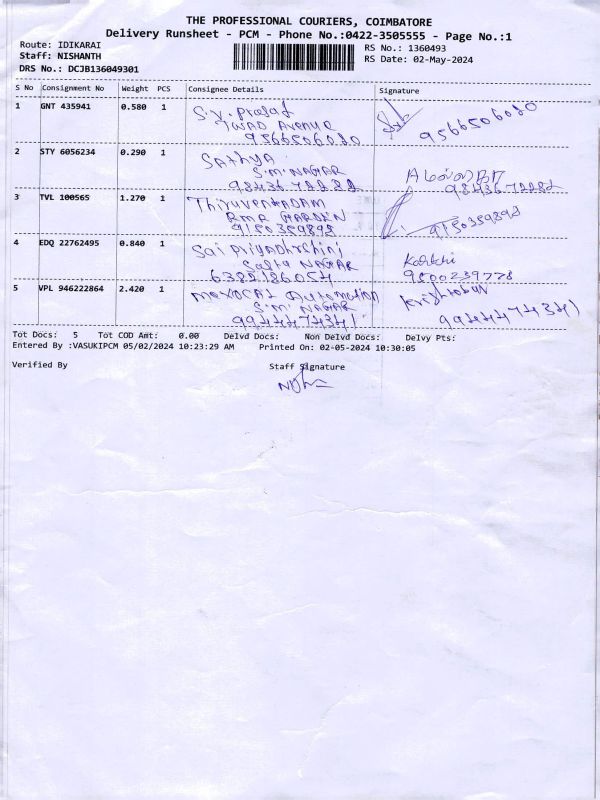 THE PROFESSIONAL COURIERS, COIMBATORE
Delivery Runsheet - PCM - Phone No.:0422-3505555 - Page No.:1
Route: IDIKARAI
RS No.: 1360493
Staff: NISHANTH
RS Date: 02-May-2024
DRS No.: DCJB136049301
S No Consignment No Weight PCS Consignee Details Signature
1 GNT 435941 0.580 1 S.V. Prasat
TWAD Avenue
9566506080 9566506080
2 STY 6056234 0.290 1 Sathya
S.M. NAGAR
9843672282 9843672282
3 TVL 100565 1.270 1 ThiruvenkADAM
RMR GARDEN
9150359898 9150359898
4 EDQ 22762495 0.840 1 Sai Priyadhrshini
NAGAR
9500239778
5 VPL 946222864 2.420 1 Automation
S.M. NAGAR
9944474341 9944474341
Tot Docs: 5 Tot COD Amt: 0.00 Delvd Docs: Non Delvd Docs: Delvy Pts:
Entered By :VASUKIPCM 05/02/2024 10:23:29 AM Printed On: 02-05-2024 10:30:05
Verified By Staff Signature